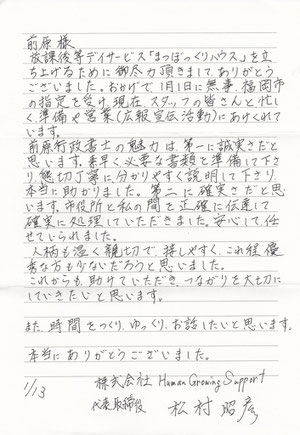 前原様
放課後等デイサービス「まつぼっくりハウス」を立
ち上げるために御尽力頂きましてありがとう
ございました。おかげで1月1日に無事、福岡市
の指定を受け、現在、スタッフの皆さんと忙し
く準備や営業(広報宣伝活動)にあけくれて
います。
前原行政書士の魅力は第一に誠実さだと
思います。素早く必要な書類を準備して下さ
り懇切丁寧に、分かりやすく説明して下さり
本当に助かりました。第二に確実さだと思い
ます。市役所と私の間を正確に伝達して
確実に処理していただきました。安心して、任
せていられました。
人柄も憑く親切で、接しやすく、これ程優
秀な方も少ないだろうと思いました。
これからも、助けていただき、つながりを大切に
していきたいと思います。
また、時間をつくり、ゆっくり、お話したいと思います。
本当にありがとうございました。
1/13
株式会社 Human Growing Support
代表取締役 松村昭彦